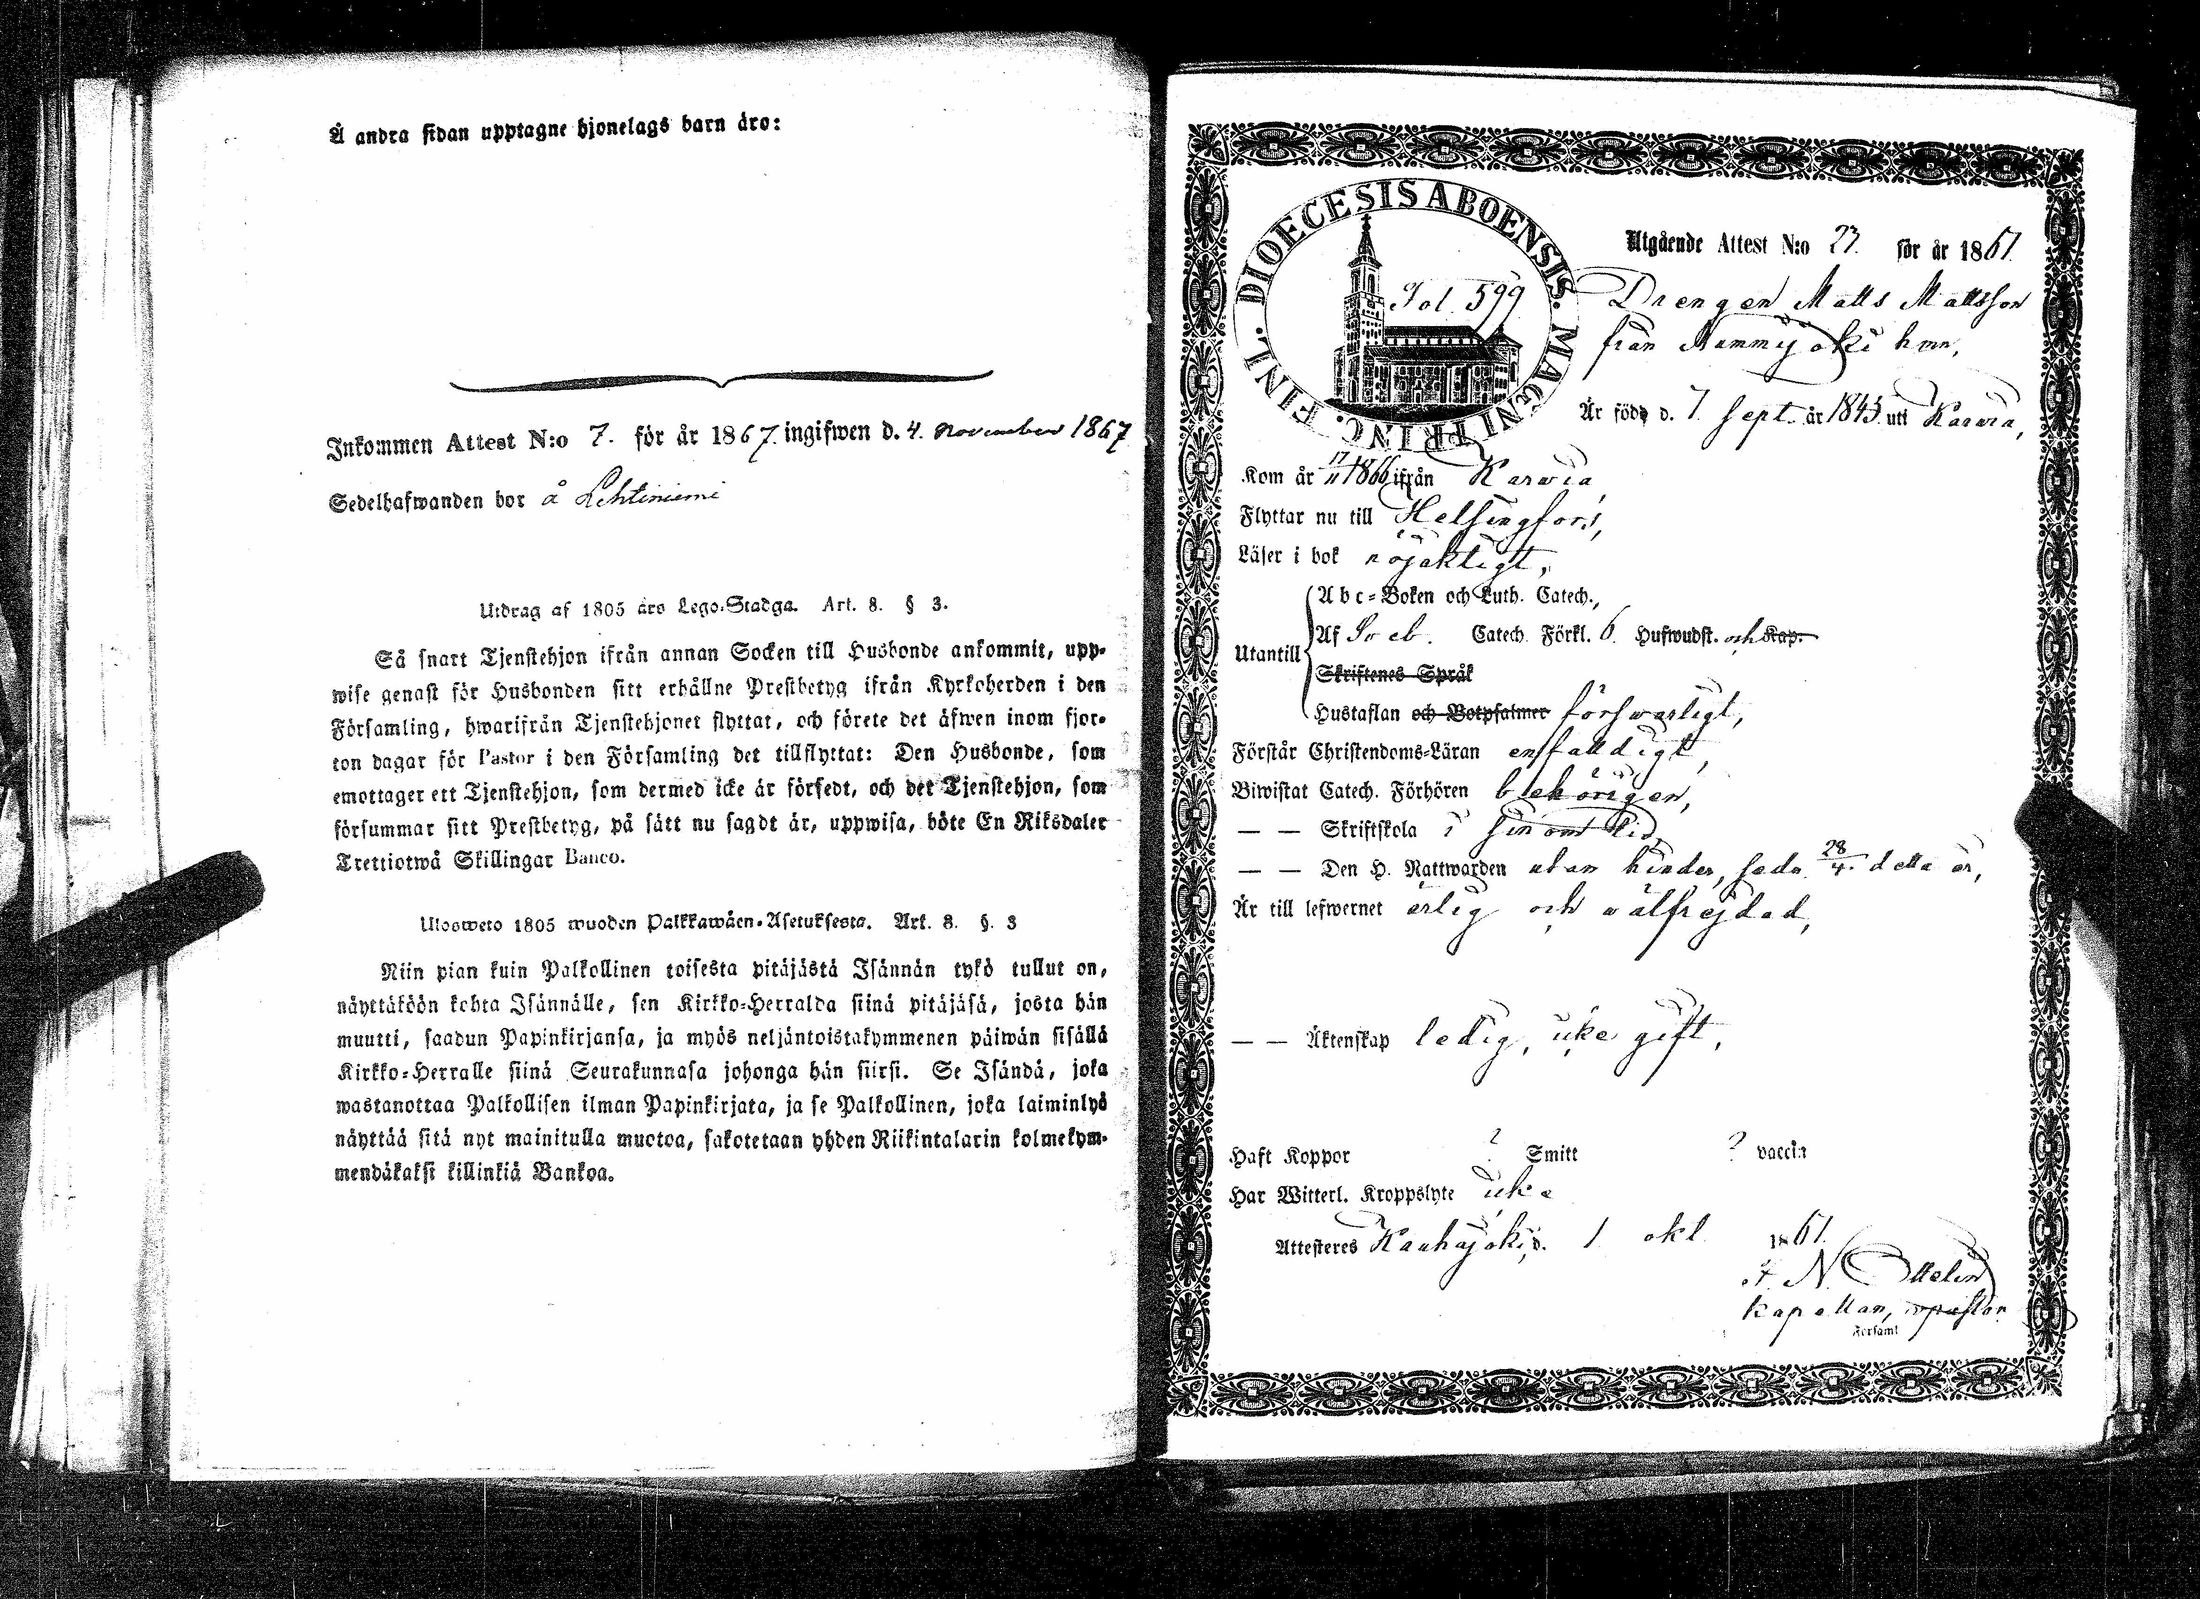 Å andra sidan upptagne hjonelags barn äro:
Inkommen Attest N:o 7. för år 1867. ingifwen d. 4. november 1867
Sedelhafwanden bor å Lehtiniemi
Utdrag af 1805 års Lego-Stadga. Art. 8. § 3.
Så snart Tjenstehjon ifrån annan Socken till Husbonde ankommit, upp-
wise genast för Husbonden sitt erhållne Prestbetyg ifrån Kyrkoherden i den
Församling, hwarifrån Tjenstehjonet flyttat, och förete det äfwen inom fjor-
ton dagar för Pastor i den Församling det tillflyttat: Den Husbonde, som
emottager ett Tjenstehjon, som dermed icke är försedt, och det Tjenstehjon, som
försummar sitt Prestbetyg, på sätt nu sagdt är, uppwisa, böte En Riksdaler
Trettiotwå Skillingar Banco.
Ulosweto 1805 wuoden Palkkawäen-Asetuksesta. Art. 8. §. 3
Niin pian kuin Palkollinen toisesta pitäjästä Isännän tykö tullut on,
näyttäköön kohta Isännälle, sen Kirkko-Herralda siinä pitäjäsä, josta hän
muutti, saadun Papinkirjansa, ja myös neljäntoistakymmenen päiwän sisällä
Kirkko-Herralle siinä Seurakunnasa johonga hän siirsi. Se Isändä, joka
wastanottaa Palkollisen ilman Papinkirjata, ja se Palkollinen, joka laiminlyö
näyttää sitä nyt mainitulla muotoa, sakotetaan yhden Riikintalarin kolmekym-
mendäkaksi killinkiä Bankoa.
DIOECESIS ABOENSIS. MAGNI PRINC. FINL.
Fol. 599
Utgående Attest N:o 23. för år 1867
Drengen Matts Mattsson
från Nummijoki hmn,
Är född d. 7. Sept. år 1843 uti Karvia,
Kom år 17/11 1866 ifrån Karvia,
Flyttar nu till Helsingfors,
Läser i bok nöjaktigt,
Utantill
Abc-Boken och Luth. Catech.,
Af Sveb. Catech. Förkl. 6. Hufwudst. och Kap.
Skriftenes Språk
Hustaflan och Botpsalmer försvarligt,
Förstår Christendoms-Läran enfaldigt,
Biwistat Catech. Förhören behörigen,
— — Skriftskola i sinom tid,
— — Den H. Nattwarden utan hinder, sedn. 28/4. detta år,
Är till lefwernet ärlig och välfrejdad,
— — Äktenskap ledig, icke gift,
Haft Koppor ? Smitt ? vaccin
Har Witterl. Kroppslyte icke
Attesteres Kauhajoki, d. 1 okt 1867.
N. Ottelin
Kapellan, v pastor
Församl